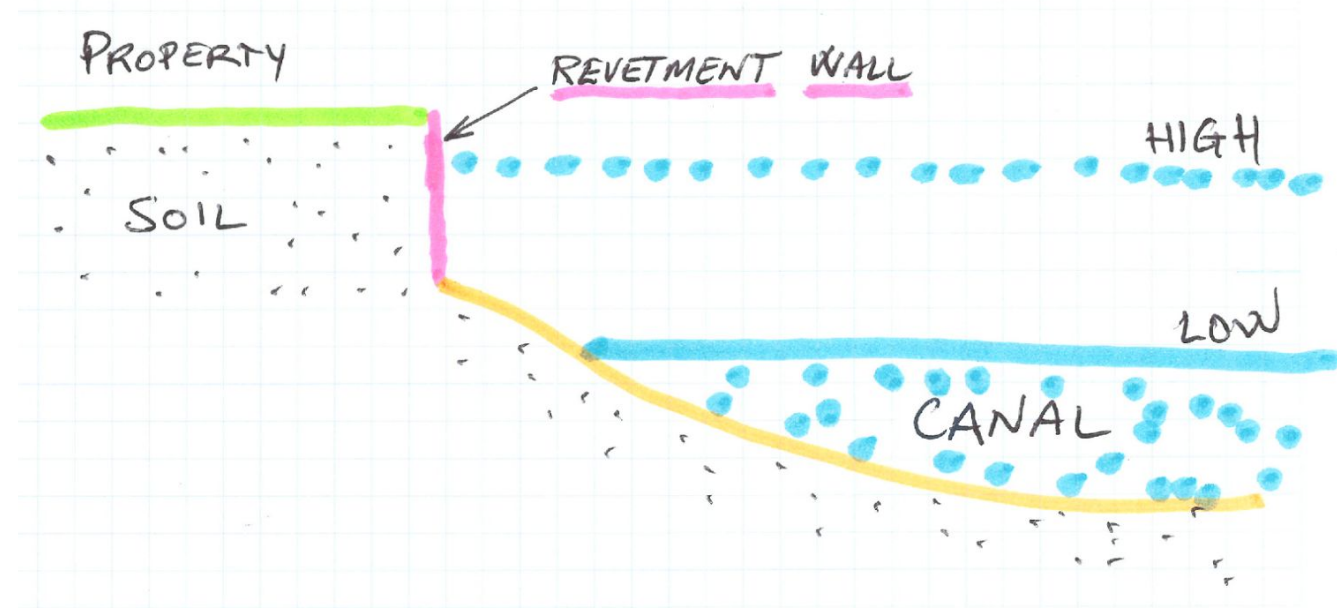 PROPERTY
REVETMENT WALL
HIGH
SOIL
LOW
CANAL